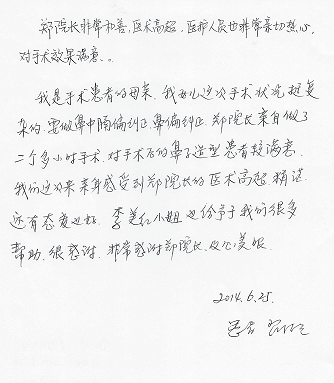 郑院长非常和善，医术高超，医护人员也非常亲切热心，
对手术效果满意。。
我是手术患者的母亲，我女儿这次手术状况挺复
杂的，要做鼻中隔偏纠正，鼻偏纠正，郑院长亲自做了
二个多小时手术，对手术后的鼻子造型患者较满意。
我们这次来亲身感受到郑院长的医术高超，精湛
还有态度也好，李美红小姐也给予了我们很多
帮助，很感谢，非常感谢郑院长，
2014.6.25.